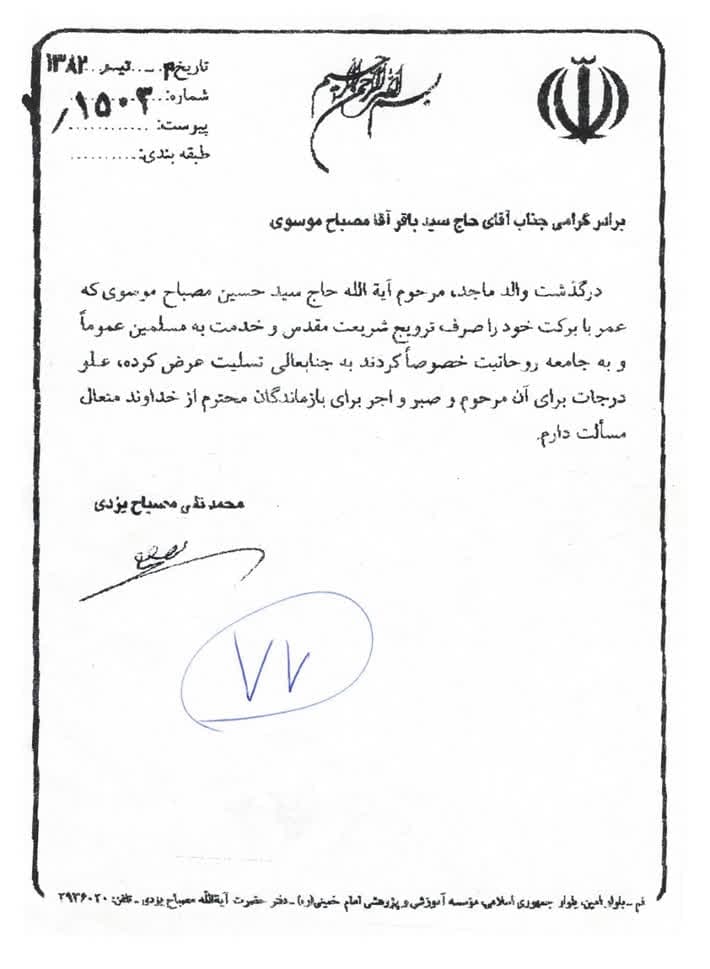 بسم الله الرحمن الرحیم
تاریخ: ... تیر ... ۱۳۸۲
شماره: ۱۵۰۳/
پیوست: ............
طبقه بندی: ..........
برادر گرامی جناب آقای حاج سید باقر آقا مصباح موسوی
درگذشت والد ماجد، مرحوم آیة الله حاج سید حسین مصباح موسوی که
عمر با برکت خود را صرف ترویج شریعت مقدس و خدمت به مسلمین عموماً
و به جامعه روحانیت خصوصاً کردند به جنابعالی تسلیت عرض کرده، علو
درجات برای آن مرحوم و صبر و اجر برای بازماندگان محترم از خداوند متعال
مسألت دارم.
محمد تقی مصباح یزدی
۷۷
قم ـ بلوار امین، بلوار جمهوری اسلامی، مؤسسه آموزشی و پژوهشی امام خمینی(ره) ـ دفتر حضرت آیةالله مصباح یزدی ـ تلفن: ۲۹۳۶۰۲۰